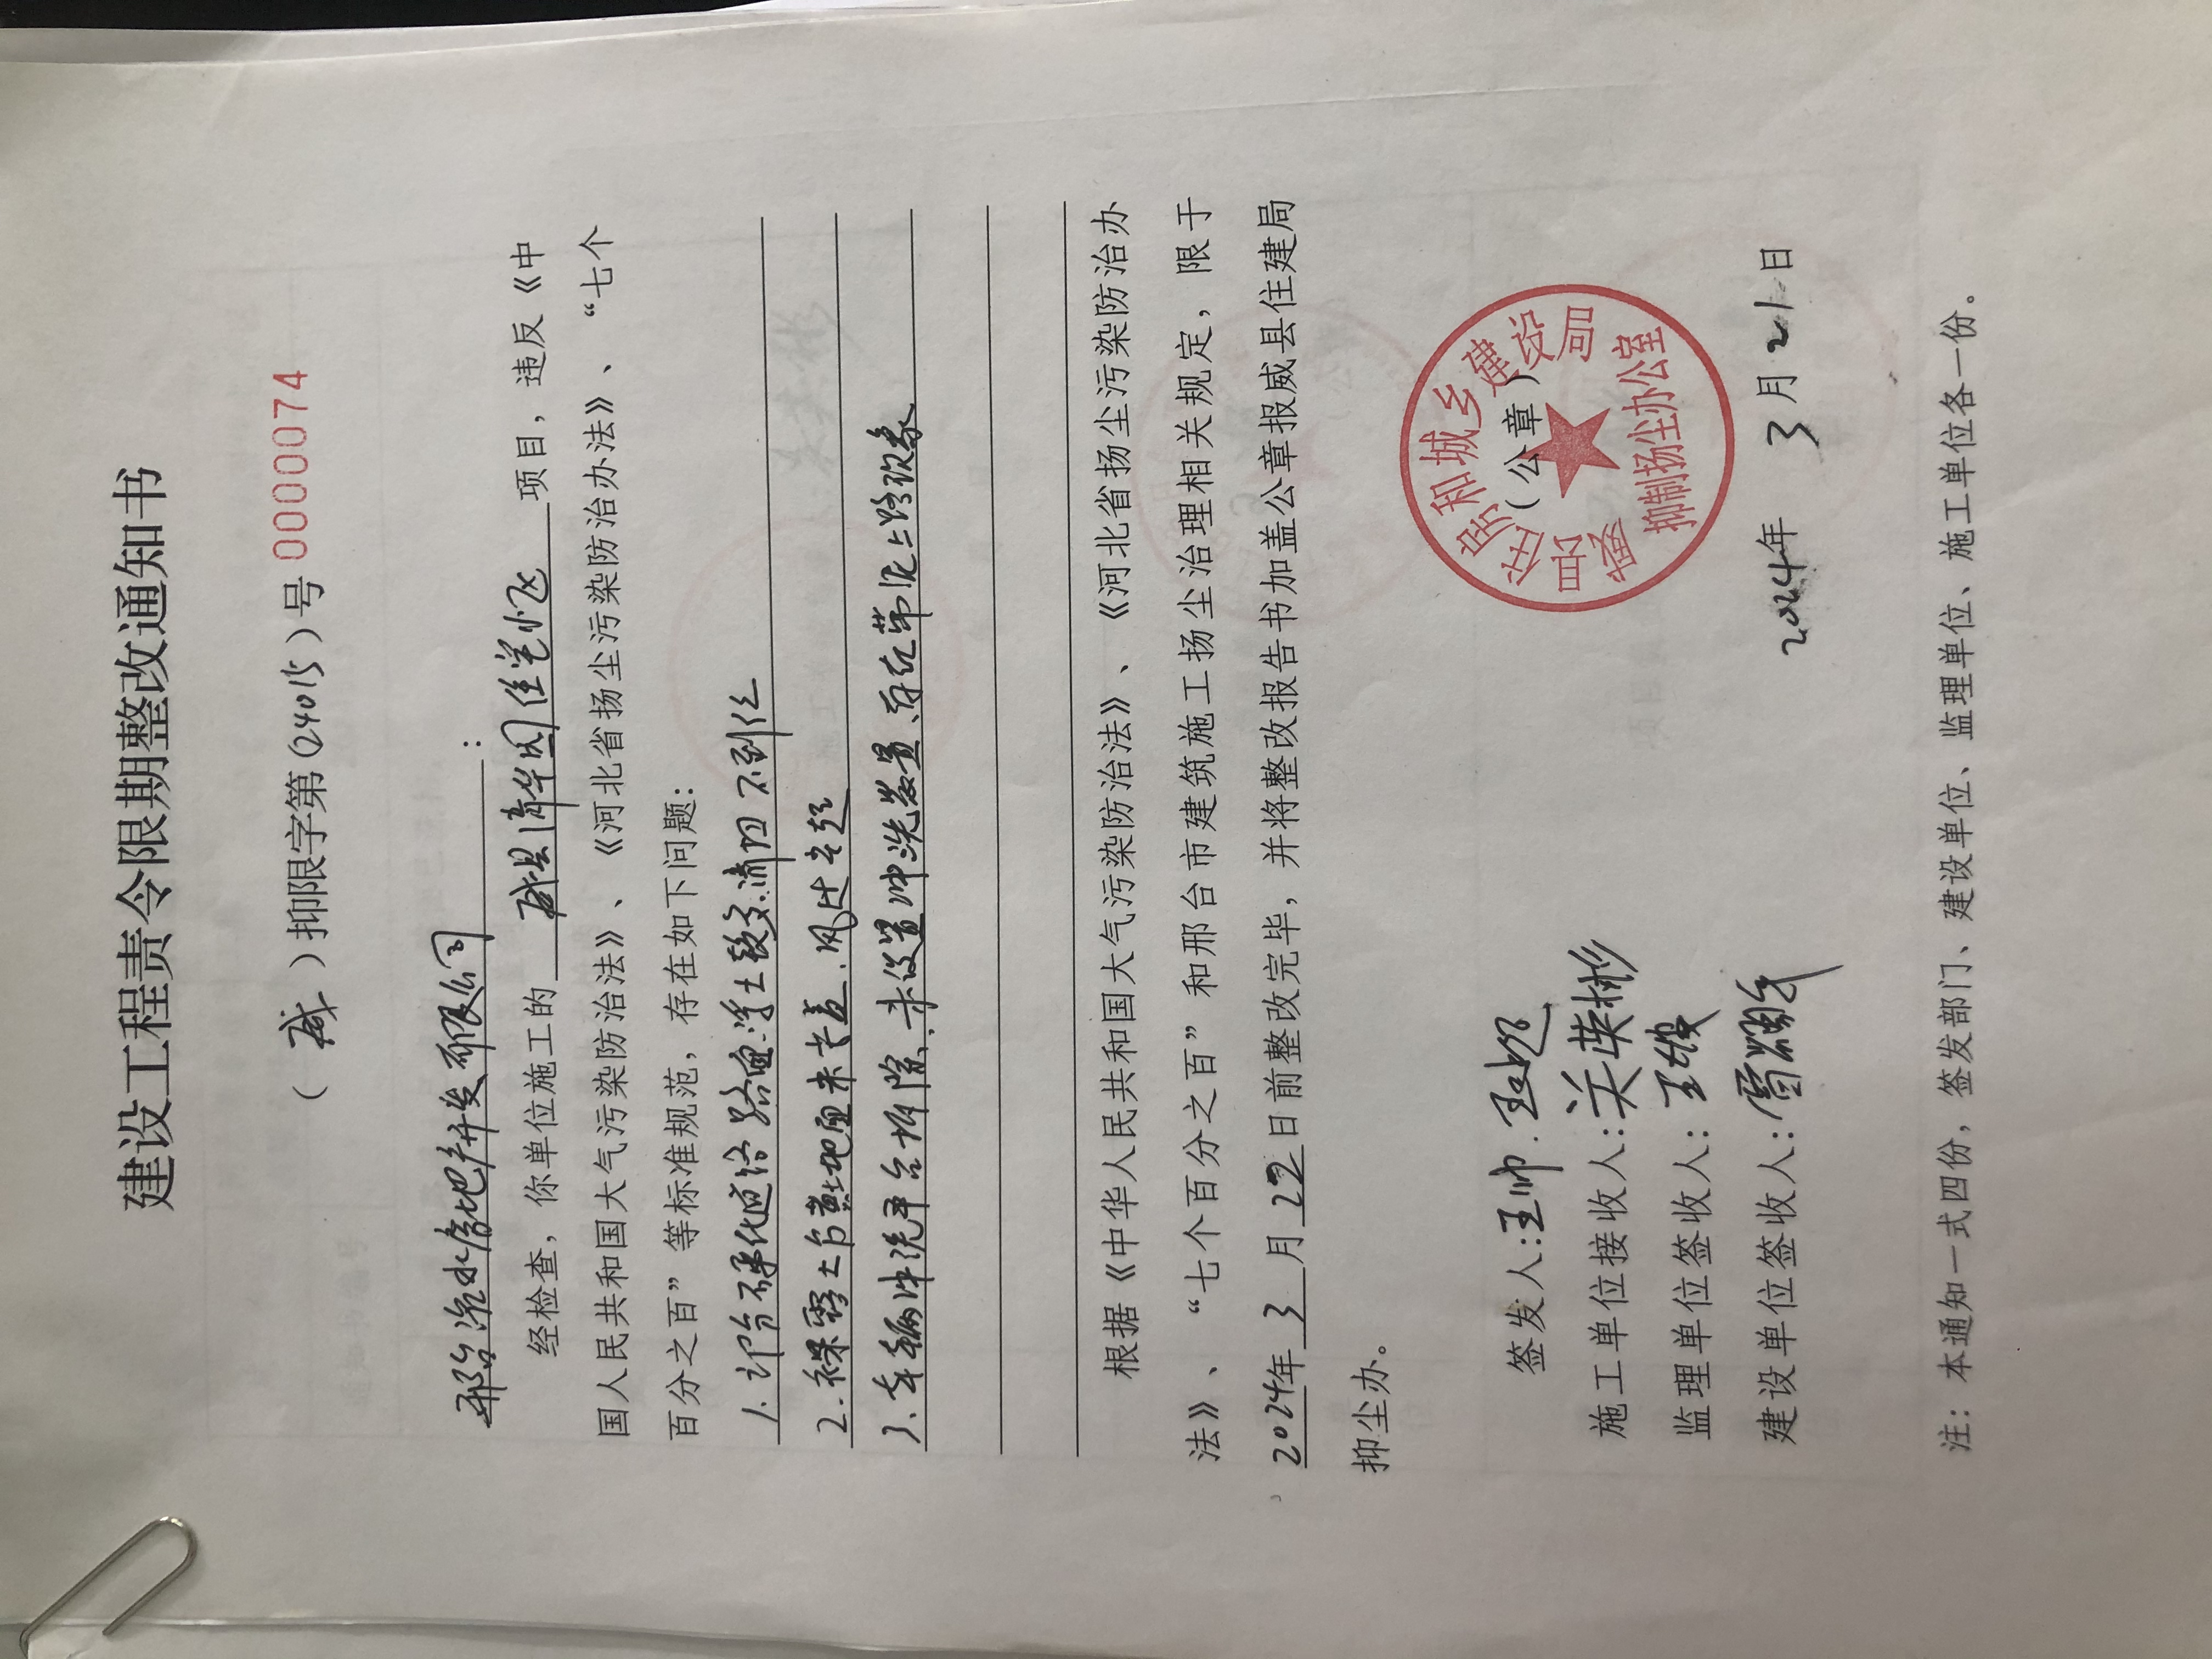 建设工程责令限期整改通知书
（威）抑限字第（24015）号 0000074
邢台冶水房地产开发有限公司：
经检查，你单位施工的 威县清华园佳 项目，违反《中
国人民共和国大气污染防治法》、《河北省扬尘污染防治办法》、“七个
百分之百”等标准规范，存在如下问题：
1.部分硬化道路路面浮土较多.清扫不到位
2.裸露土与黄土地面未苫盖.
3.车辆冲洗平台拆除、未设置冲洗装置、存在带泥上路现象
根据《中华人民共和国大气污染防治法》、《河北省扬尘污染防治办
法》、“七个百分之百”和邢台市建筑施工扬尘治理相关规定，限于
2024年3月22日前整改完毕，并将整改报告书加盖公章报威县住建局
抑尘办。
签发人：王帅.
施工单位接收人：关英彬
监理单位签收人：王
建设单位签收人：雷
威县住房和城乡建设局
（公章）
抑制扬尘办公室
2024年3月21日
注：本通知一式四份，签发部门、建设单位、监理单位、施工单位各一份。